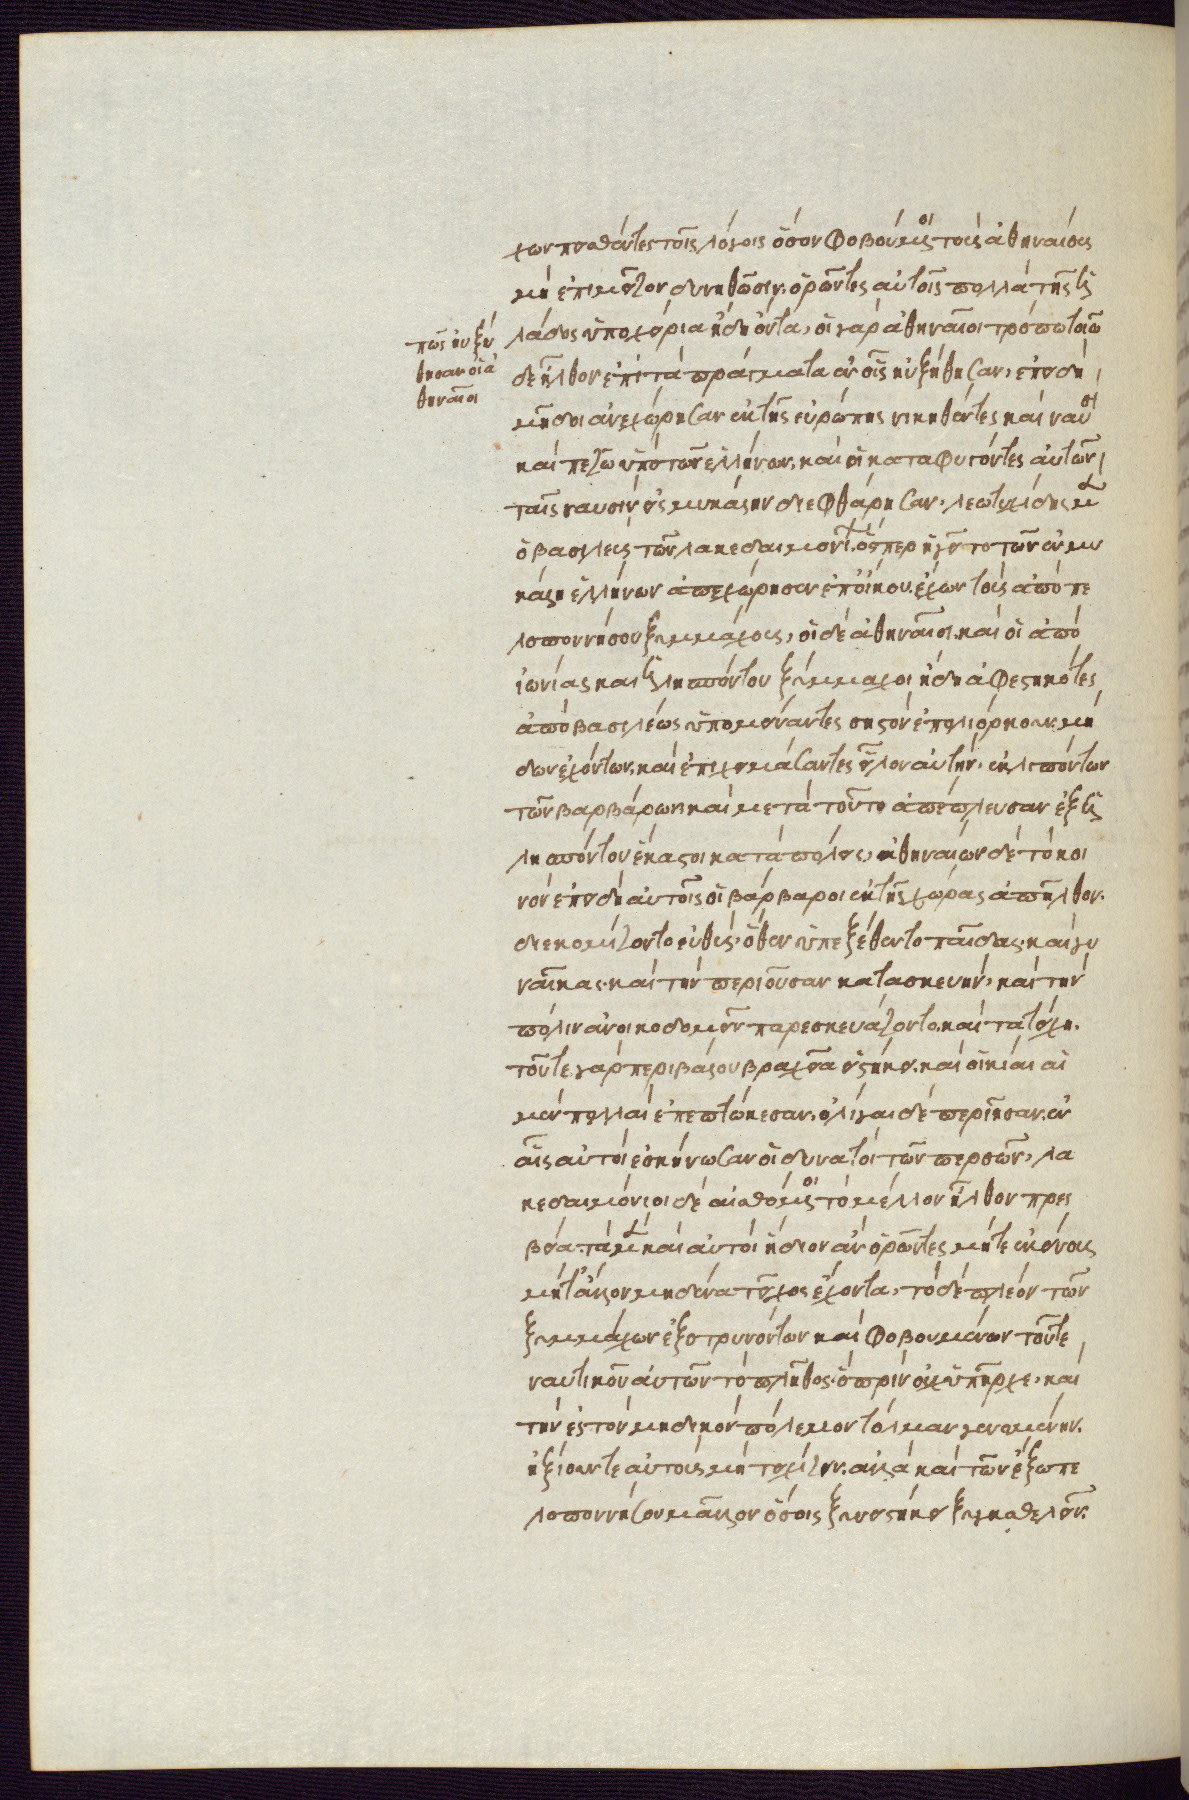 χων πεισθέντες τοῖς λόγοις ὅσον φοβούμενοι τοὺς ἀθηναίους
μὴ ἐπιμεῖζον δυνηθῶσιν. ὁρῶντες αὐτοῖς πολλὰ τῆς ἑλ
λάδος ὑποχείρια ἤδη ὄντα, οἱ γὰρ ἀθηναῖοι τρόπω τοιῶ
δε ἦλθον ἐπὶ τὰ πράγματα ἐν οἷς ηὐξήθησαν, ἐπειδὴ
πῶς ηὐξή
θησαν οἱ ἀ
θηναῖοι
μῆδοι ἀνεχώρησαν ἐκ τῆς εὐρώπης νικηθέντες καὶ ναυσὶ
καὶ πεζῶ ὑπὸ τῶν ἑλλήνων, καὶ οἱ καταφυγόντες αὐτῶν
ταῖς ναυσὶν ἐς μυκάλην διεφθάρησαν, λεωτυχίδης μὲν
ὁ βασιλεὺς τῶν λακεδαιμονίων ὅσπερ ἡγεῖτο τῶν ἐν μυ
κάλη ἑλλήνων ἀπεχώρησεν ἐπ' οἴκου, ἔχων τοὺς ἀπὸ πε
λοποννήσου ξυμμάχους, οἱ δὲ ἀθηναῖοι, καὶ οἱ ἀπὸ
ἰωνίας καὶ ἑλλησπόντου ξύμμαχοι ἤδη ἀφεστηκότες
ἀπὸ βασιλέως ὑπομείναντες σηστὸν ἐπολιόρκουν, μή
δων ἐχόντων, καὶ ἐπιχειμάσαντες εἷλον αὐτὴν, ἐκλιπόντων
τῶν βαρβάρων καὶ μετὰ τοῦτο ἀπέπλευσαν ἐξ ἑλ
λησπόντου ἕκαστοι κατὰ πόλεις, ἀθηναίων δὲ τὸ κοι
νὸν ἐπειδὴ αὐτοῖς οἱ βάρβαροι ἐκ τῆς χώρας ἀπῆλθον.
διεκομίζοντο εὐθὺς, ὅθεν ὑπεξέθεντο παῖδας, καὶ γυ
ναῖκας, καὶ τὴν περιοῦσαν κατασκευὴν, καὶ τὴν
πόλιν ἀνοικοδομεῖν παρεσκευάζοντο, καὶ τὰ τείχη.
τοῦ τε γὰρ περιβόλου βραχέα εἱστήκει, καὶ οἰκίαι αἱ
μὲν πολλαὶ ἐπεπτώκεσαν, ὀλίγαι δὲ περιῆσαν, ἐν
αἷς αὐτοὶ ἐσκήνωσαν οἱ δυνατοὶ τῶν περσῶν, λα
κεδαιμόνιοι δὲ αἰσθόμενοι τὸ μέλλον ἦλθον πρεσ
βεία, τὰ μὲν καὶ αὐτοὶ ἥδιον ἂν ὁρῶντες μήτε ἐκείνους
μήτ' ἄλλον μηδένα τεῖχος ἔχοντα, τὸ δὲ πλέον τῶν
ξυμμάχων ἐξοτρυνόντων καὶ φοβουμένων τοῦ τε
ναυτικοῦ αὐτῶν τὸ πλῆθος, ὃ πρὶν οὐχ ὑπῆρχε, καὶ
τὴν ἐς τὸν μηδικὸν πόλεμον τόλμαν γενομένην.
ἠξίουν τε αὐτοὺς μὴ τειχίζειν. ἀλλὰ καὶ τῶν ἔξω πε
λοποννήσου μᾶλλον ὅσοις ξυνειστήκει ξυγκαθελεῖν.